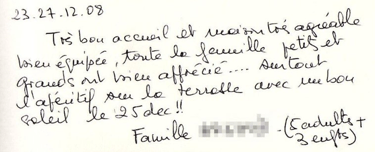 23.27.12.08
Très bon accueil et maison très agréable
bien équipée, toute la famille petits et
grands ont bien apprécié.... surtout
l'apéritif sur la terrasse avec un bon
soleil le 25 dec!!
Famille - (5 adults +
3 enfts)